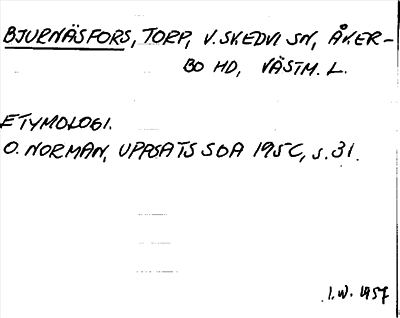 BJURNÄSFORS, TORP, V. SKEDVI SN, ÅKER-
BO HD, VÄSTM. L.
ETYMOLOGI.
O. NORMAN, UPPSATS SOA 195C, s. 31.
I.W. 1957